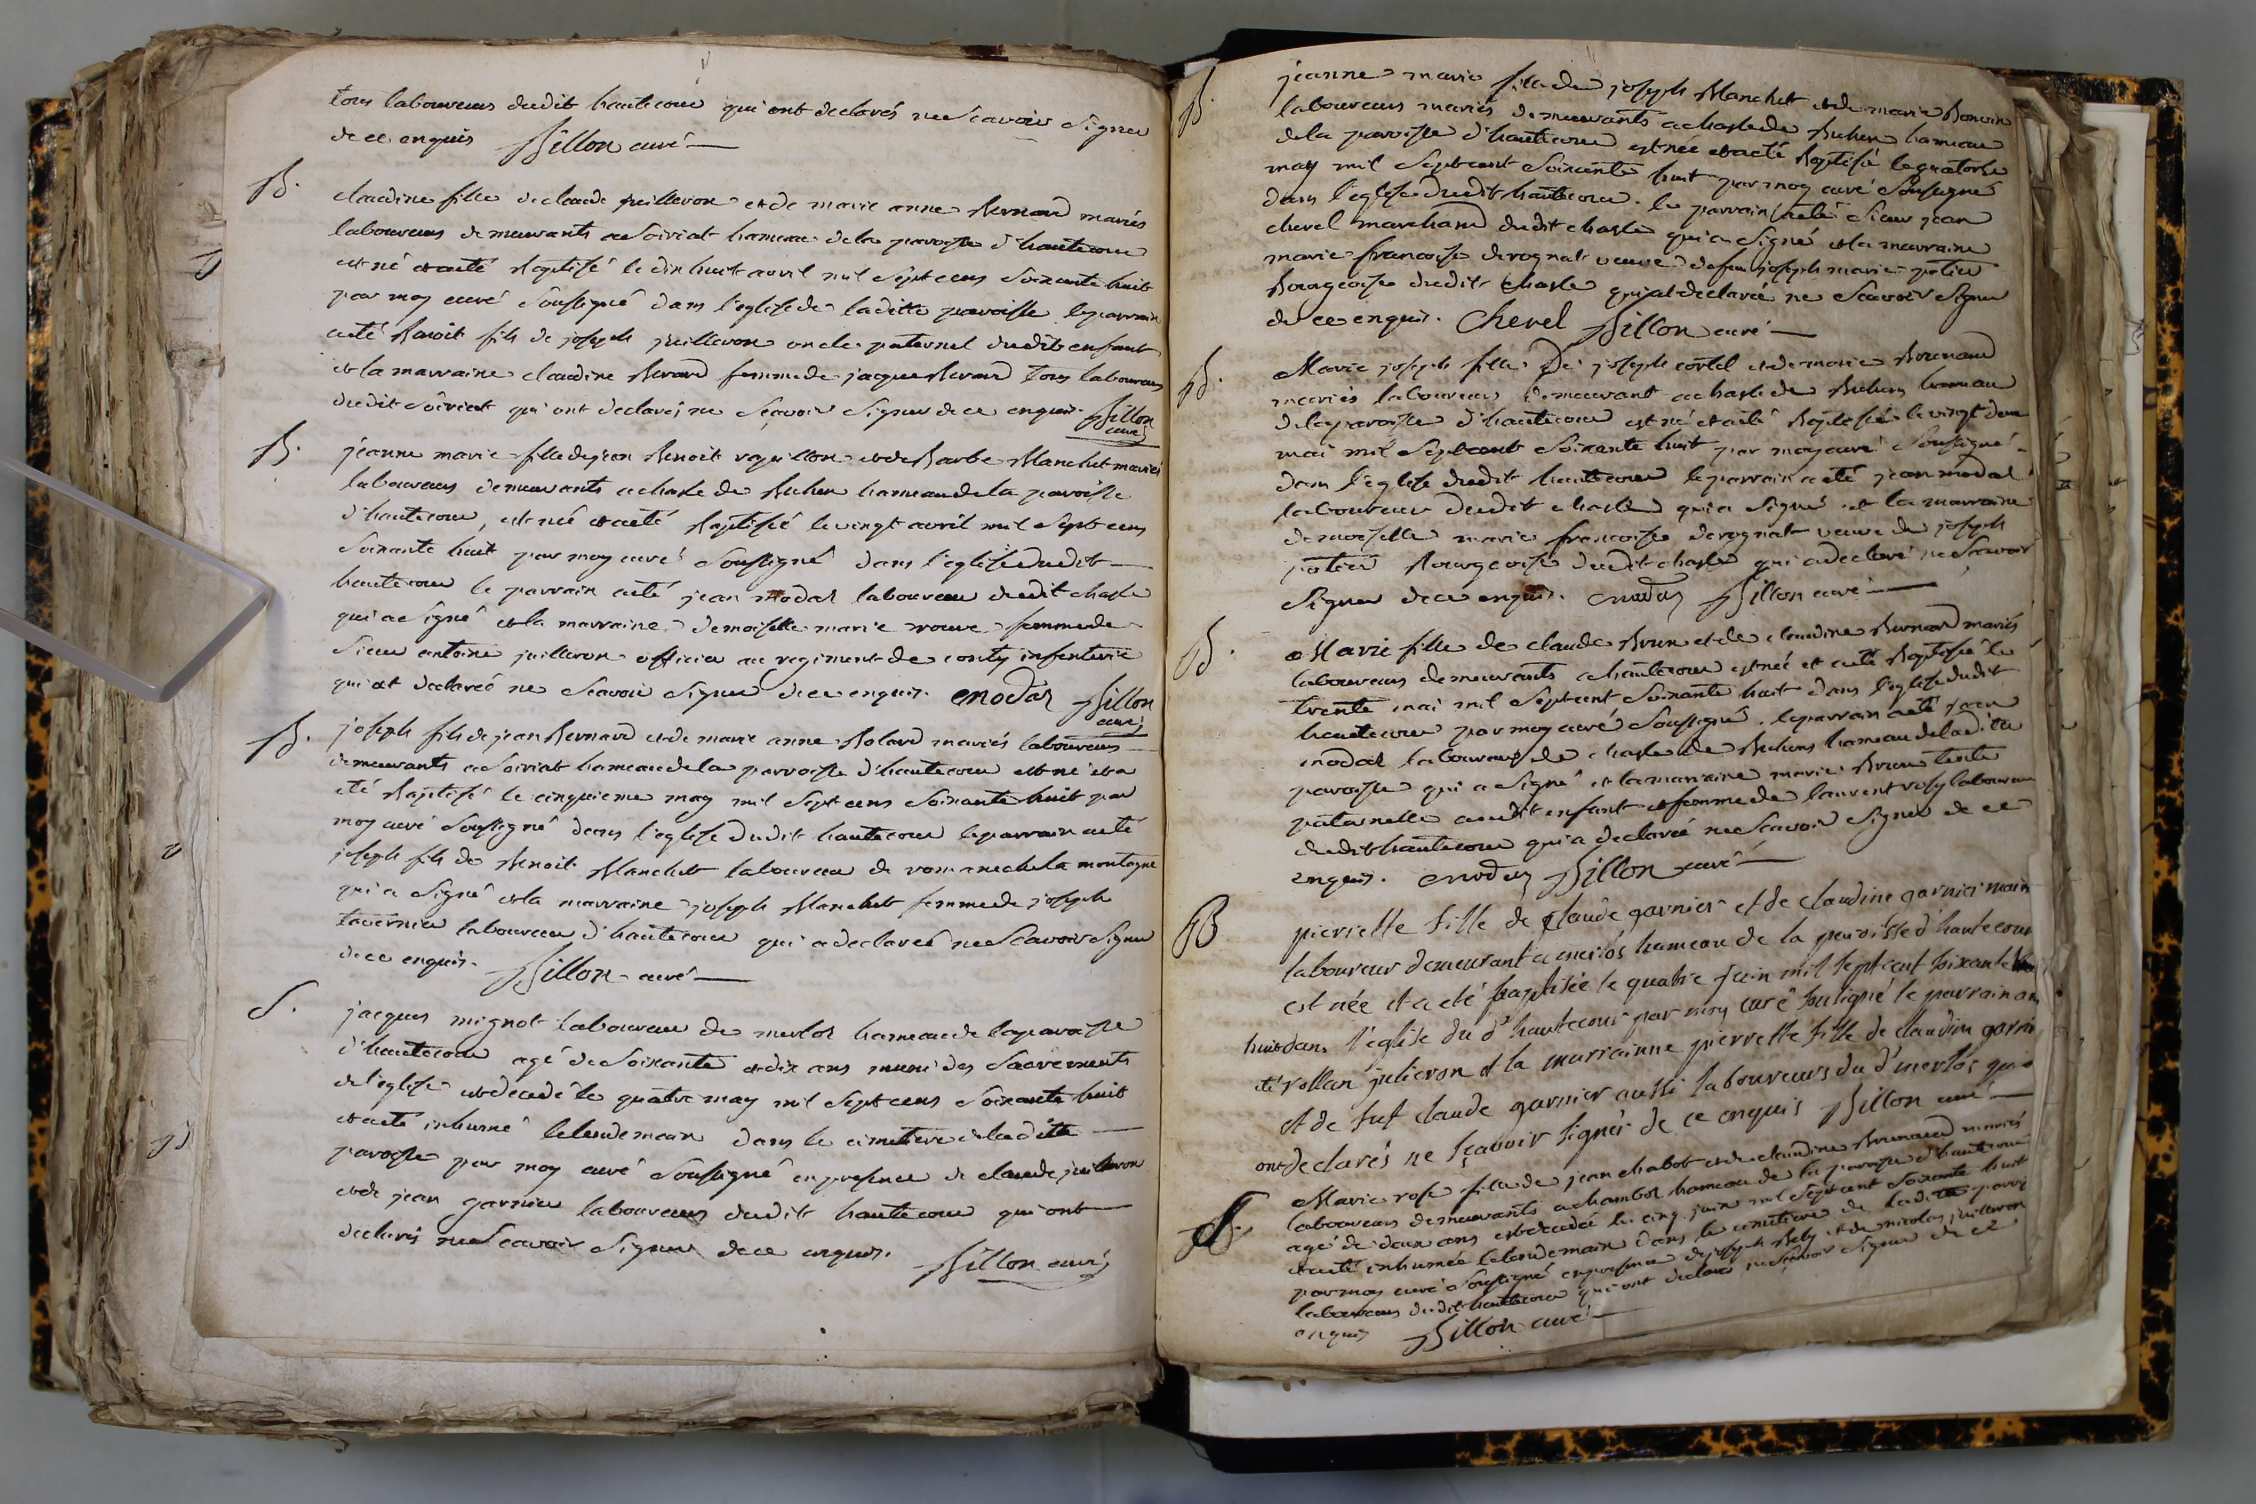 tous laboureurs dudit hautecour qui ont declarés ne Scavoir Signer
de ce enquis Billon curé
B. claudine fille de claude juilleron et de marie anne Bernard mariés
laboureurs demeurants a Soiriat hameau de la paroisse d'hautecour
est né et a eté Baptisé le dix huit avril mil Sept cens Soixante huit
par moy curé Soussigné dans l'eglise de laditte paroisse le parrain
a eté Benoit fils de joseph juilleron oncle paternel dudit enfant
et la marraine claudine Berard femme de jacque Berard tous laboureurs
dudit Soiriat qui ont declarés ne Scavoir Signer de ce enquis. Billon
curé
B. jeanne marie fille de jean Benoit voguillon et de Barbe Blanchet mariés
laboureurs demeurants a chasle de Buhen hameau de la paroisse
d'hautecour, est née et a eté Baptisée le vingt avril mil Sept cens
Soixante huit par moy curé Soussigné dans l'eglise dudit
hautecour le parrain a eté jean modas laboureur dudit chasle
qui a Signé et la marraine demoiselle marie rouve femme de
Sieur antoine juilleron officier au regiment de conty infenterie
qui at declareé ne Scavoir Signer de ce enquis. modas Billon
curé
B. joseph fils de jean Bernard et de marie anne Bolard mariés laboureurs
demeurants a Soiriat hameau de la parroisse d'hautecour est né et a
eté Baptisé le cinquieme may mil Sept cens Soixante huit par
moy curé Soussigné dans l'eglise dudit hautecour le parrain a eté
joseph fils de Benoit Blanchet laboureur de romanechela montagne
qui a Signé et la marraine joseph Blanchet femme de joseph
tavernier laboureur d'hautecour qui a declareé ne Scavoir Signer
de ce enquis. Billon curé
S. jacques mignot laboureur de merlos hameau de la paroisse
d'hautecour agé de Soixante et dix ans muni des Sacrements
de l'eglise est decedé le quatre may mil Sept cens Soixante huit
et a eté inhumé le lendemain dans le cimetiere de laditte
paroisse par moy curé Soussigné en presence de claude juilleron
et de jean garnier laboureurs dudit hautecour qui ont
declarés ne Scavoir Signer de ce enquis. Billon curé
B. jeanne marie fille de joseph Blanchet et de marie Bonvoin
laboureurs mariés demeurants a chasle de Buhen hameau
de la paroisse d'hautecour est née et a eté Baptisée le quatorse
may mil Sept cent Soixante huit par moy curé Soussigné
dans l'eglise dudit hautecour. le parrain a eté Sieur jean
chevel marchand dudit chasle qui a Signé et la marraine
marie francoise derognat veuve de feu joseph marie potier
Bourgeoise dudit chasle qui at declareé ne Scavoir Signer
de ce enquis. Chevel Billon curé
B. Marie joseph fille De joseph cortel et de marie Bornand
mariés laboureurs demeurant a chasle de Buhens hameau
de la paroisse d'hautecour est né et a eté Baptisée le vingt deux
mai mil Sept cent Soixante huit par moy curé Soussigné
dans l'eglise dudit hautecour le parrain a eté jean modas
laboureur dudit chasle qui a Signé et la marraine
demoiselle marie francoise derognat veuve de joseph
potier Bourgeoise dudit chasle qui a declaré ne Scavoir
Signer de ce enquis. modas Billon curé
B. Marie fille de claude Brun et de claudine Bernard mariés
laboureurs demeurants a hautecour est née et a eté Baptisée le
trente mai mil Sept cent Soixante huit dans l'eglise dudit
hautecour par moy curé Soussigné. le parrain a eté jean
modas laboureur de chasle de Buhens hameau de la ditte
paroisse qui a Signé et la marraine marie Brun tente
paternelle audit enfant et femme de laurent rosy laboureur
dudit hautecour qui a declareé ne Scavoir Signer de ce
enquis. modas Billon curé
B pierrette fille de Claude garnier et de claudine garnier mariés
laboureur demeurant a merlós hameau de la paroisse d'hautecour
est née et a eté baptisée le quatre juin mil sept cent soixante
huit dans l'eglise du d' hautecour par moy curé soussigné le parrain a
été rollan julieron et la marrainne pierrette fille de claudine garnier
et de fut claude garnier aussi laboureurs du d' merlós qui
ont declarés ne sçavoir signer de ce enquis Billon curé
S. Marie rose fille de jean chabot et de claudine Brunaud mariés
laboureurs demeurants a chambos hameau de la paroisse d'hautecour
agé de deux ans est decedeé le cinq juin mil Sept cent Soixante huit
et a eté inhumée le lendemain dans le cimetiere de ladite parroisse
par moy curé Soussigné en presence de joseph Bely et de nicolas juilleron
laboureurs dudit hautecour qui ont declarés ne Scavoir Signer de ce
enquis Billon curé